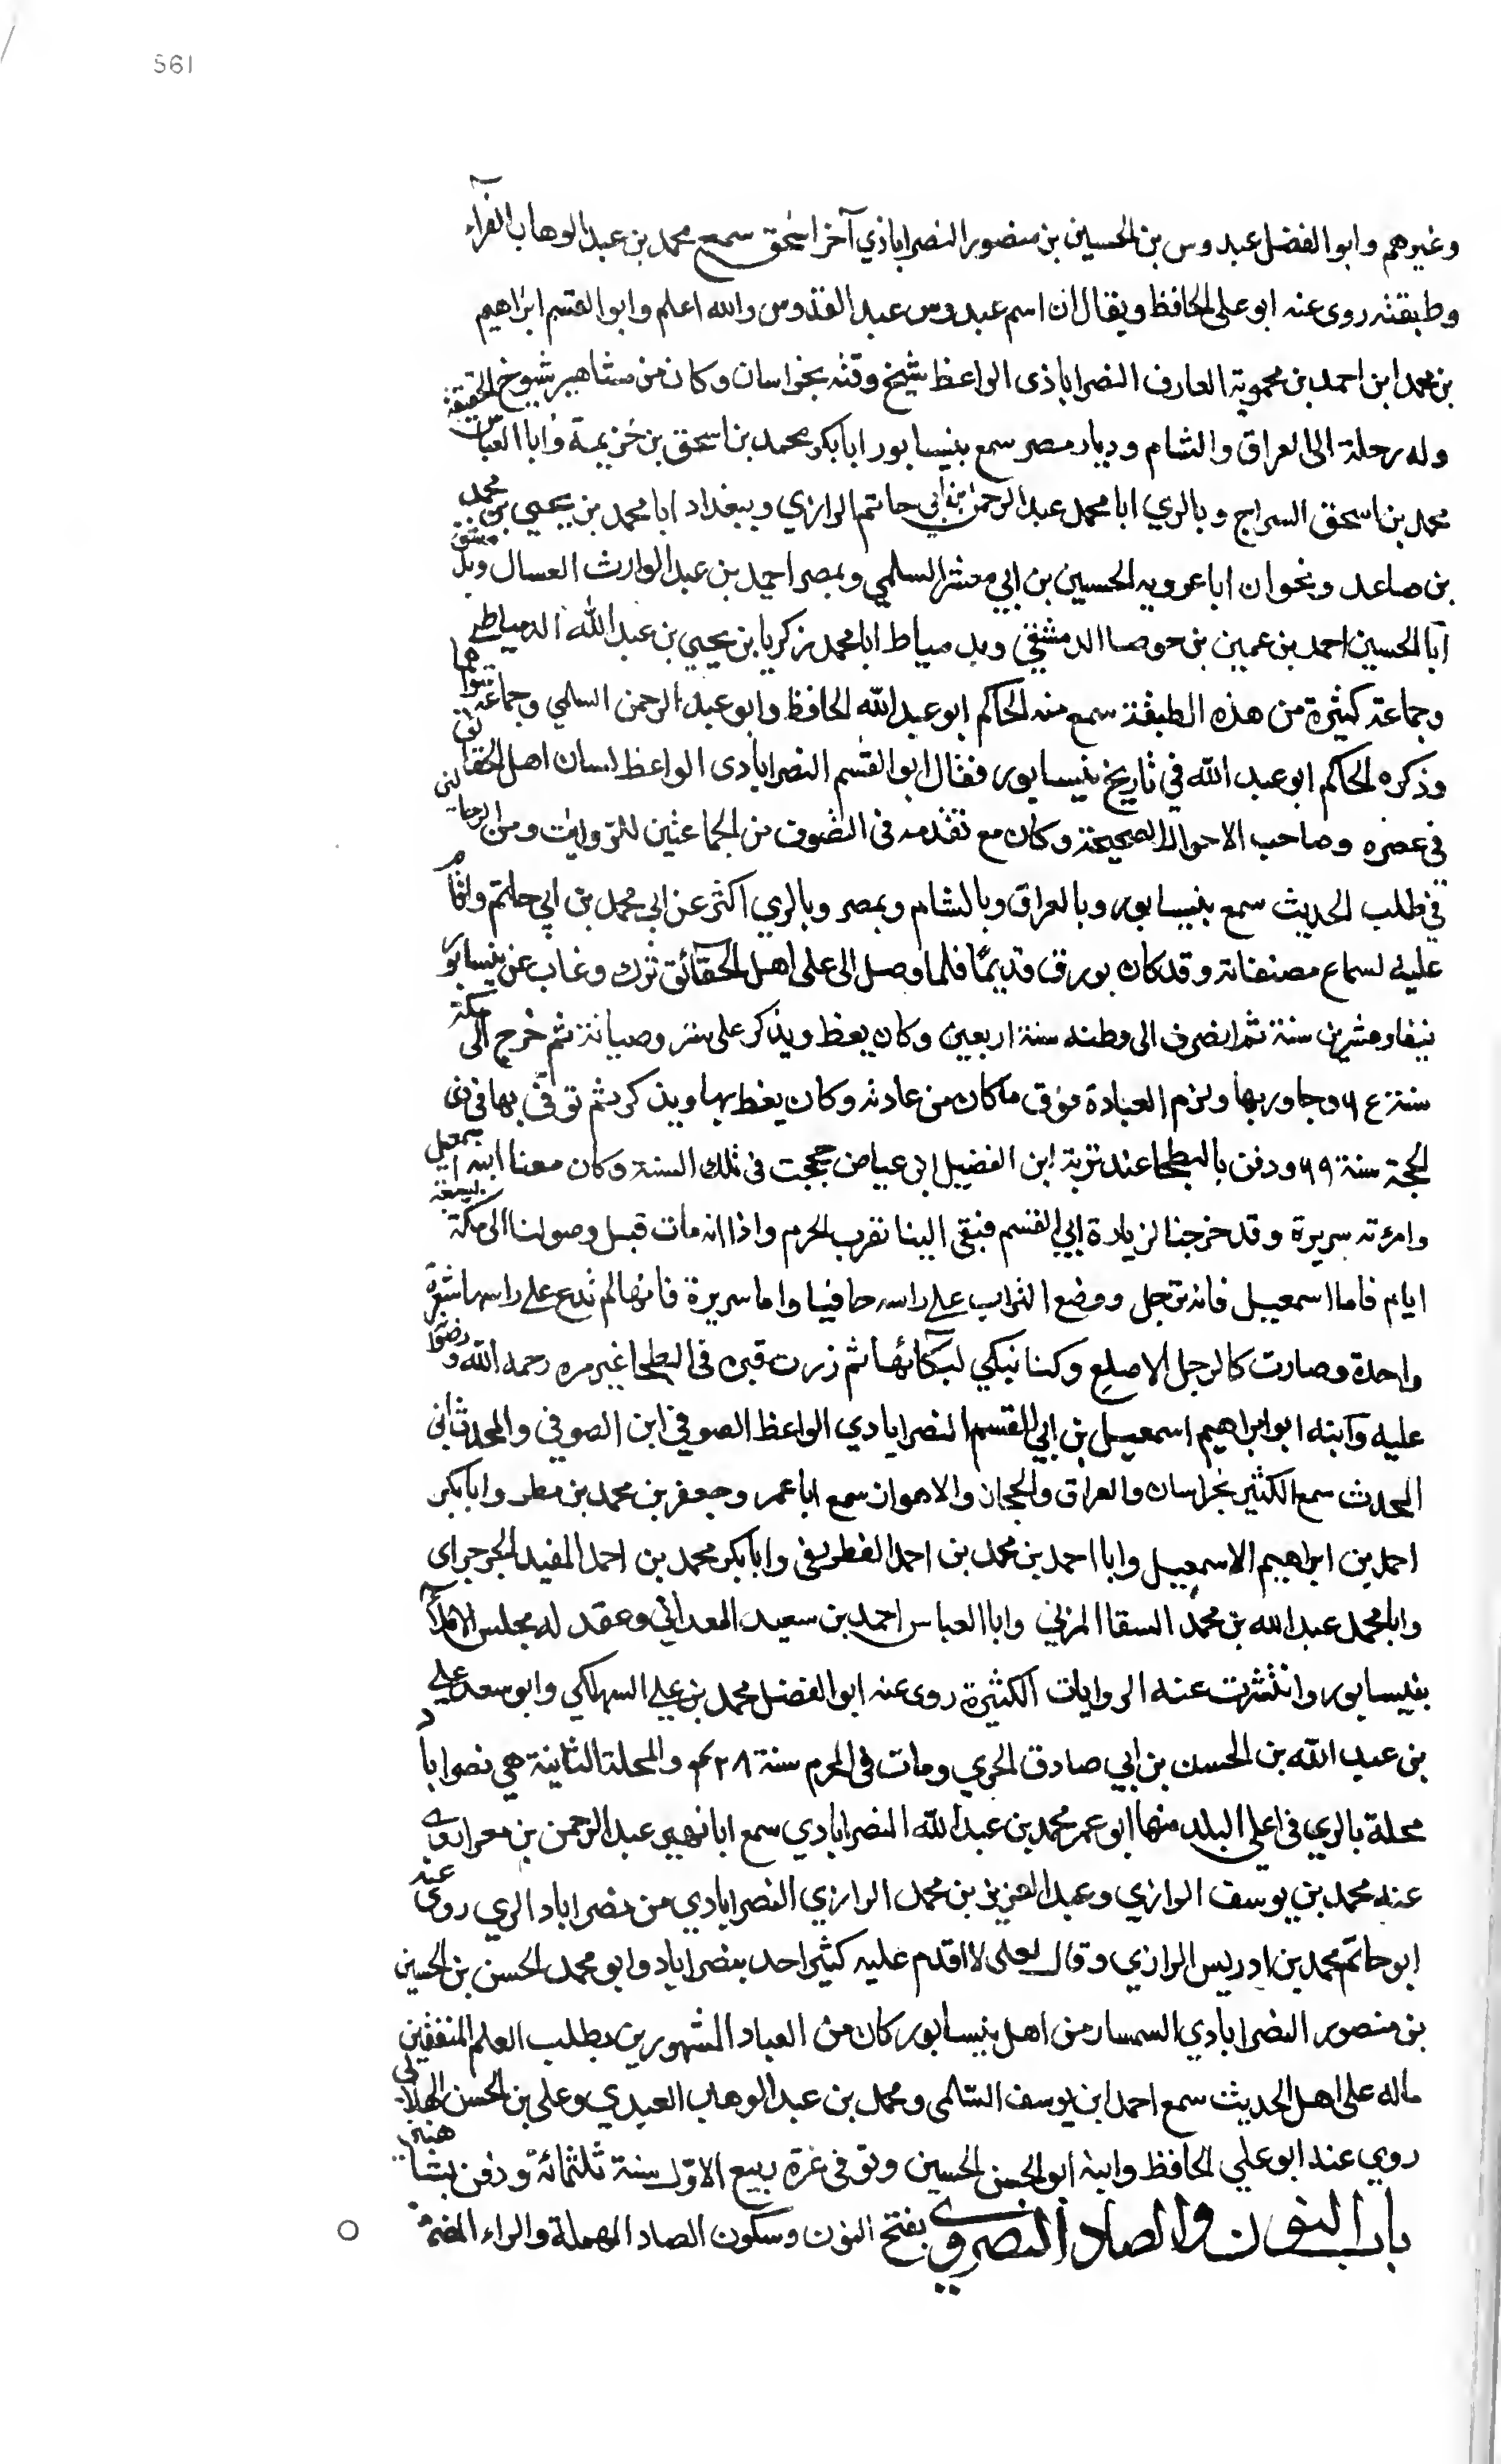 561
وغيرهم وابو الفضل عبدوس بن الحسين بن منصور النصراباذي آخر اسحق سمع محمد بن عبد الوهاب الفراء
وطبقته روى عنه ابو على الحافظ ويقال ان اسم عبدوس عبد القدوس والله اعلم وابو القسم ابراهيم
بن محمد ابن احمد بن محموية العارف النصراباذى الواعظ شيخ وقته بخراسان وكان من مشاهير شيوخ الحقيقة
وله رحلة الى العراق والشام وديار مصر سمع بنيسابور ابا بكر محمد بن اسحق بن خزيمة وابا العباس
محمد بن اسحق السراج وبالري ابا محمد عبد الرحمن بن أبي حاتم الرازي وببغداد ابا محمد بن يحيي بن محمد
بن صاعد وبحران ابا عروبه الحسين بن ابي معشر السلمي وبمصر احمد بن عبد الوارث العسال وبدمشق
ابا الحسين احمد بن عمين بن حوصا الدمشقي وبدمياط ابا محمد زكريا بن يحيي بن عبد الله الدمياطي
وجماعة كثيرة من هذه الطبقة سمع منه الحاكم ابو عبد الله الحافظ وابو عبد الرحمن السلمي وجماعة سواهما
وذكره الحاكم ابو عبد الله في تاريخ نيسابور فقال ابو القسم النصرابادى الواعظ لسان اهل الحقائق
في عصره وصاحب الاحوال الصحيحة وكان مع تقدمه في التصوف من الجماعين للروايات ومن الرحالين
في طلب الحديث سمع بنيسابور وبالعراق وبالشام وبمصر وبالري اكثر عن ابي محمد بن ابي حاتم واقام
عليه لسماع مصنفاته وقد كان يورق قديما فلما وصل الى على اهل الحقائق ترك وغاب عن نيسابور
نيفا وعشرين سنة ثم انصرف الى وطنه سنة اربعين وكان يعظ ويذكر على ستر وصيانة ثم خرج الى مكة
سنة وجاور بها ولزم العبادة فوق ما كان من عادته وكان يعظ بها ويذكر ثم توفى بها في ذي
الحجة سنة ٦٩ ودفن بالبطحا عند تربة ابن الفضيل ابن عياض حججت في تلك السنة وكان معنا ابنه اسمعيل
وامرءته سريرة وقد خرجنا لزيارة ابي القسم فنعى الينا بقرب الحرم واذا انه مات قبل وصولنا الى مكة بسبعة
ايام فاما اسمعيل فانه ترجل ووضع التراب على راسه حافيا واما سريرة فانها لم تدع على راسها شعرة
واحدة وصارت كالرجل الاصلع وكنا نبكي لبكائها ثم زرت قبره في البطحا غير مره رحمة الله ورضوانه
عليه وابنه ابو ابراهيم اسمعيل بن ابي القسم النصرابادي الواعظ الصوفي ابن الصوفي والمحدث ابن
المحدث سمع الكثير بخراسان والعراق والحجاز والاهواز سمع ابا عمر وجعفر بن محمد بن مطر وابا بكر
احمد بن ابراهيم الاسمعيل وابا احمد بن محمد بن احمد الغطريفى وابا بكر محمد بن احمد المفيد الجرجراى
وابا محمد عبد الله بن محمد السقا المزني وابا العباس احمد بن سعيد المعداني وعقد له مجلس الاملاء
بنيسابور وانتشرت عنه الروايات الكثيرة روى عنه ابو الفضل محمد بن علي السهلكي وابو سعد علي
بن عبد الله بن الحسن بن ابي صادق الحيري ومات في المحرم سنة ٤٢٨ والمحلة الثانية هي نصراباد
محلة بالري في اعلى البلد منها ابو عمر محمد بن عبد الله النصرابادي سمع ابا زهير عبد الرحمن بن معرا
عنه محمد بن يوسف الرازي وعبد العزيز بن محمد الرازي النصرابادي من نصراباد الري روى عنه
ابو حاتم محمد بن ادريس الرازي وقال لعلى لا اقدم عليه كثير احد بنصراباد وابو محمد الحسن بن الحسين
بن منصور النصرابادي السمسار من اهل نيسابور كان من العباد المشهورين بطلب العلم المنفقين
ماله على اهل الحديث سمع احمد ابن يوسف السلمى ومحمد بن عبد الوهاب العبدي وعلى بن الحسن الهلالي
روي عنه ابو علي الحافظ وابنه ابو الحسن الحسين وتوفى غرة ربيع الاول سنة ثلثمائة ودفن بشاهنبر
باب النون والصاد النصروي بفتح النون وسكون الصاد المهملة والراء المضمومة